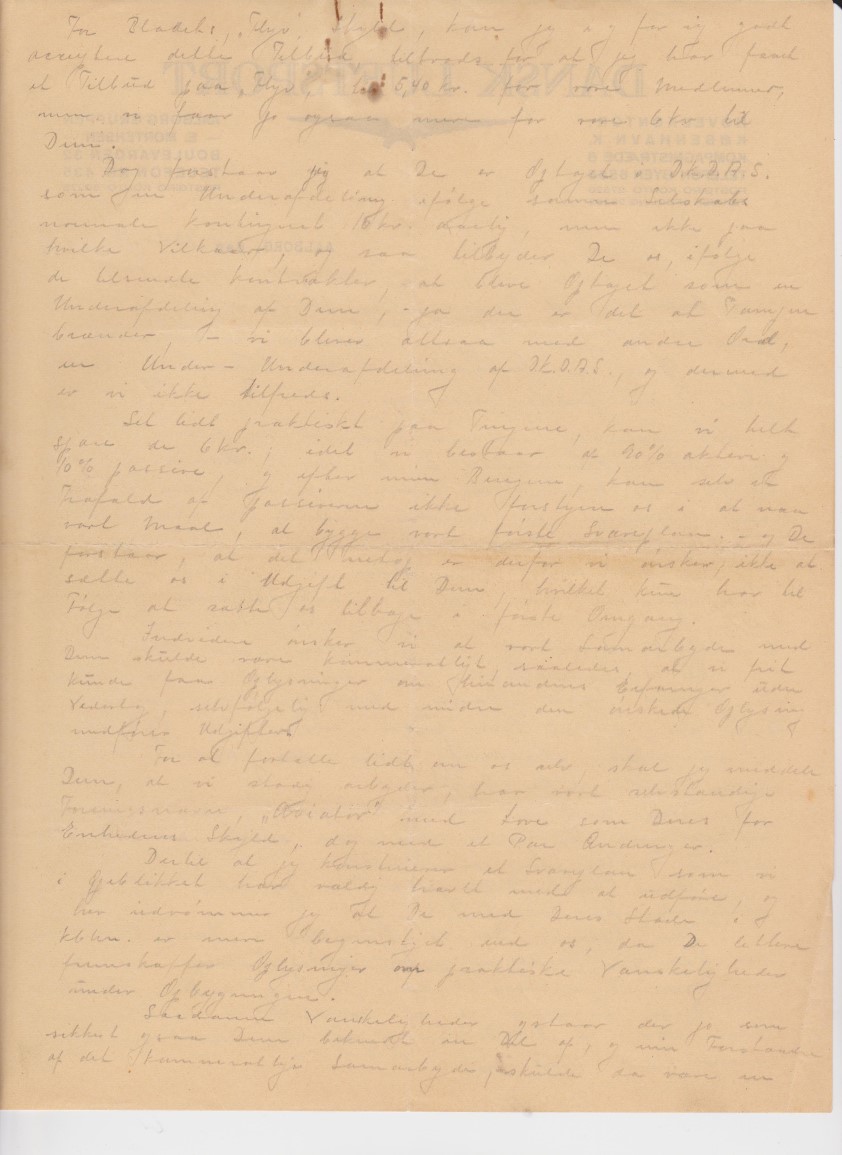 For Bladets, "Flyv" Skyld, kan jeg i og for sig godt
acceptere dette Tilbud tiltrods for at jeg har faaet
et Tilbud paa Flyv, 5,40 kr. for vore Medlemmer,
men vi faar jo ogsaa mere for vore 6 kr. til
Dem.
Dog forstaar jeg at De er Optaget i D.K.D.A.S.
som en Underafdeling ifølge samme Selskabs
normale Kontingent 15 kr. aarlig, men ikke paa
hvilke Vilkaar, og saa tilbyder De os, ifølge
de tilsendte Kontrakter, at blive Optaget som en
Underafdeling af Dem, - ja der er det at Tampen
brænder, - vi bliver altsaa med andre Ord,
en Under-Underafdeling af D.K.D.A.S., og dermed
er vi ikke tilfreds.
Set lidt praktiskt paa Tingene, kan vi helt
spare de 6 kr., idet vi bestaar af 90% aktive og
10% passive, og efter min Beregning, kan selv et
Frafald af Passiverne ikke forstyrre os i at naa
vort Maal, at bygge vort første Svæveplan. - og De
forstaar, at det netop er derfor vi ønsker, ikke at
sætte os i Udgift til Dem, hvilket kun har til
Følge at sætte os tilbage i første Omgang.
Indvidere ønsker vi at vort Samarbejde med
Dem skulde være kammeratligt, saaledes at vi frit
kunde faa Oplysninger om hinandens Erfaringer uden
Vederlag, selvfølgelig med mindre den ønskede Oplysning
medfører Udgifter.
For at fortælle lidt om os selv, skal jeg meddele
Dem, at vi stadig arbejder, har vort selvstændige
Foreningsnavn, "Aviatør" med Love som Deres for
Enhedens Skyld, dog med et Par Ændringer.
Dertil at jeg konstruerer et Svæveplan som vi
i Øjeblikket har vældig travlt med at udføre, og
her indrømmer jeg at De med Deres Stade i
Kbhn. er mere begunstiget end os, da De lettere
fremskaffer Oplysninger om praktiske Vanskeligheder
under Opbygningen.
Saadanne Vanskeligheder opstaar der jo som
sikkert ogsaa Dem bekendt en Del af, og min Forstaaelse
af det kammeratlige Samarbejde, skulde da være en